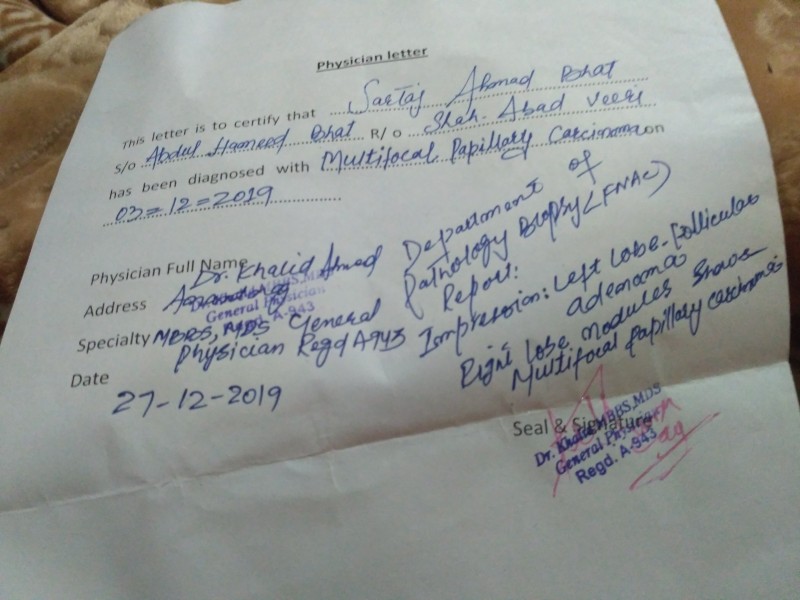 Physician letter
This letter is to certify that Sartaj Ahmad Bhat
S/o Abdul Hameed Bhat R/o Shah. Abad Veeri
has been diagnosed with Multifocal Papillary Carcinoma on
03=12=2019
Physician Full Name Dr. Khalid Ahmed
Address
General Physician
A-943
Specialty MBBS, MDS General
Physician Regd A943
Date
27-12-2019
Department of
Pathology Biopsy (FNAC)
Report:
Impression: Left Lobe-Follicular
adenoma
Right lobe nodules shows
Multifocal Papillary carcinoma
Seal & Signature
Dr. Khalid MBBS, MDS
General Physician
Regd. A-943